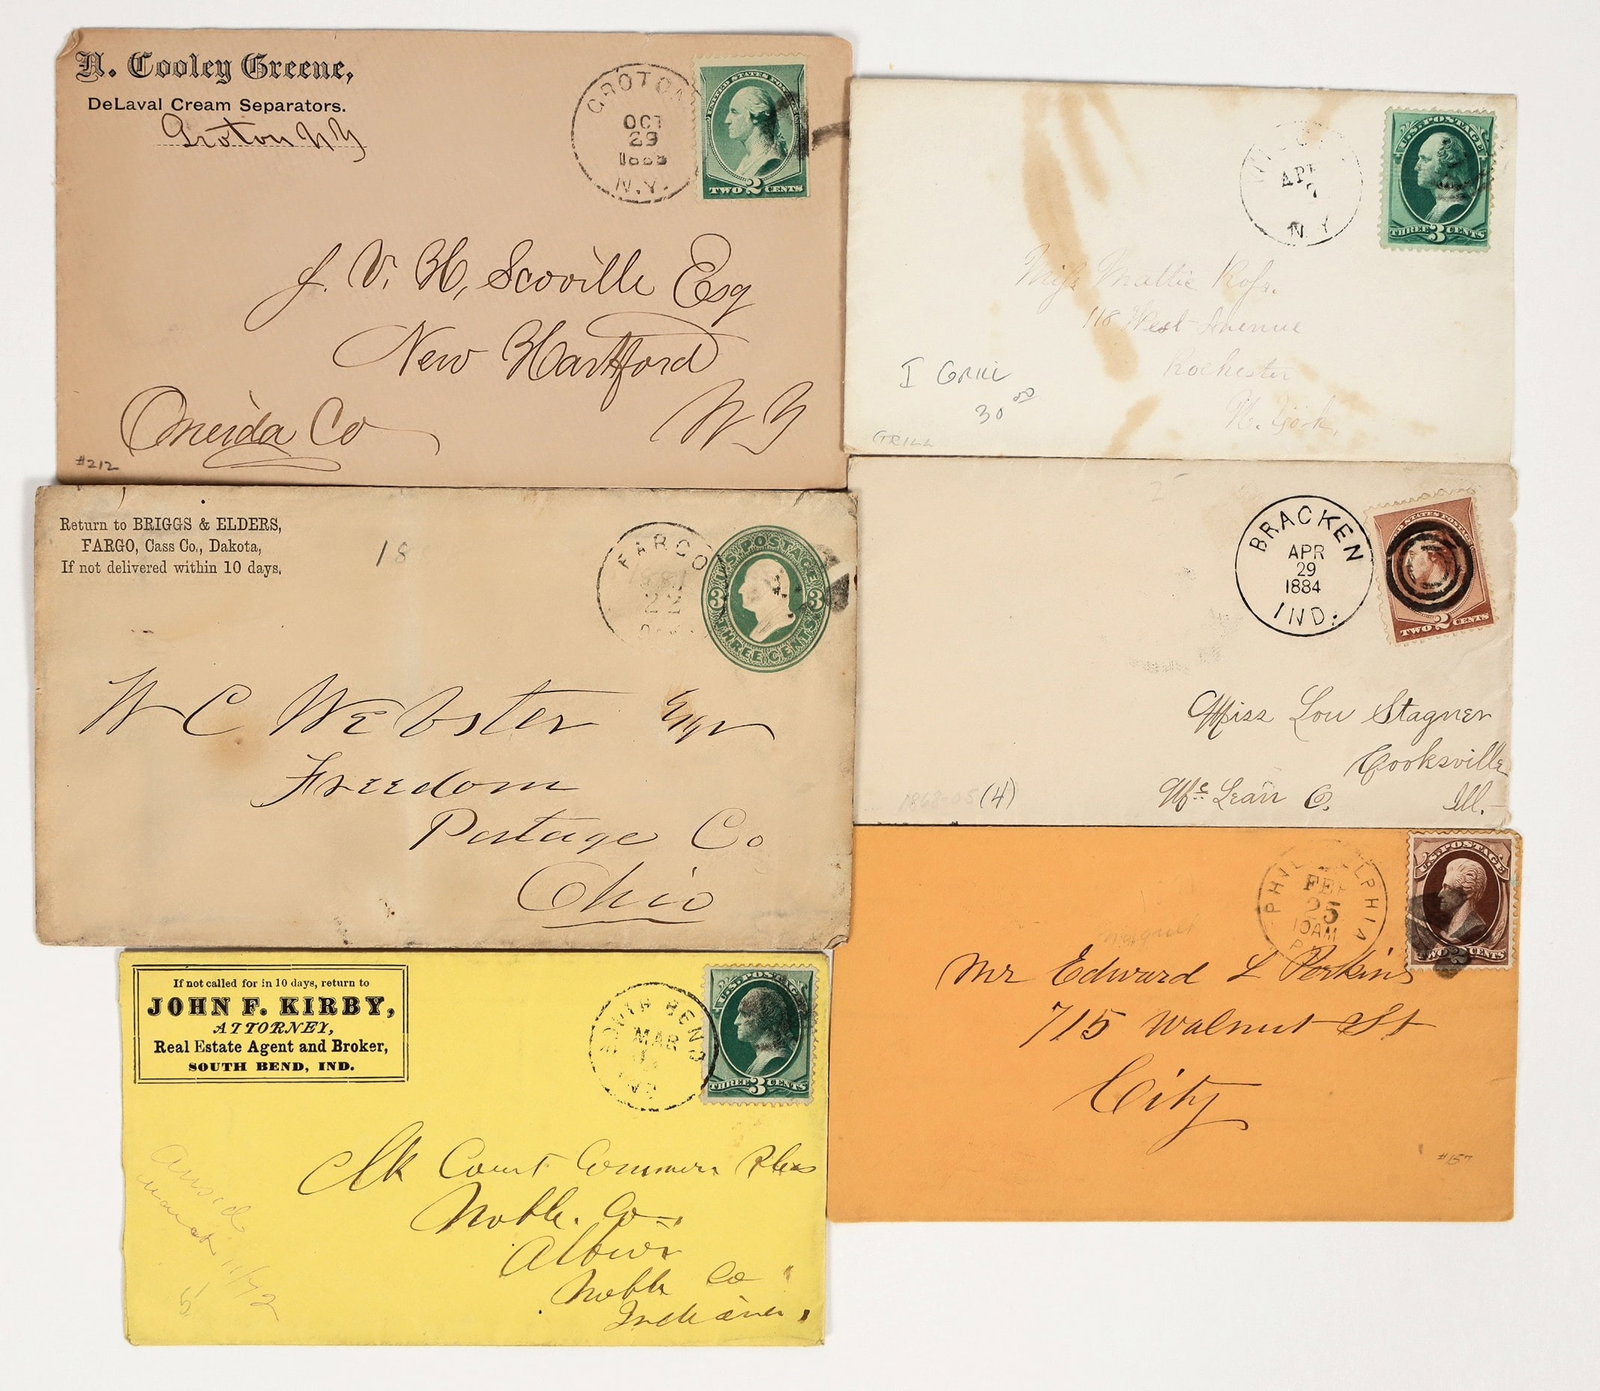 N. Cooley Greene,
DeLaval Cream Separators.
Groton N Y
GROTON
OCT
29
N.Y.
UNITED STATES POSTAGE
TWO 2 CENTS
J. V. H, Scoville Esq
New Hartford
Oneida Co
N Y
#212
APR
7
N Y
U.S. POSTAGE
THREE 3 CENTS
Miss Mattie Ross.
118 West Avenue
Rochester
N. York,
I GRILL
30 00
GRILL
Return to BRIGGS & ELDERS,
FARGO, Cass Co., Dakota,
If not delivered within 10 days.
18
FARGO
U.S. POSTAGE
3 3
THREE CENTS
W C Webster Esqr
Freedom
Portage Co
Ohio
BRACKEN
APR
29
1884
IND.
UNITED STATES POSTAGE
TWO 2 CENTS
Miss Lou Stagner
Cooksville
Mc Lean Co.
Ill.
(4)
If not called for in 10 days, return to
JOHN F. KIRBY,
ATTORNEY,
Real Estate Agent and Broker,
SOUTH BEND, IND.
SOUTH BEND
MAR
IND
U.S. POSTAGE
THREE 3 CENTS
Clk Court Common Pleas
Noble. Co
Albion
Noble Co
Indiana
PHILADELPHIA
FEB
25
10AM
PA
U.S. POSTAGE
TWO 2 CENTS
Mr Edward L Perkins
715 Walnut St
City
#157